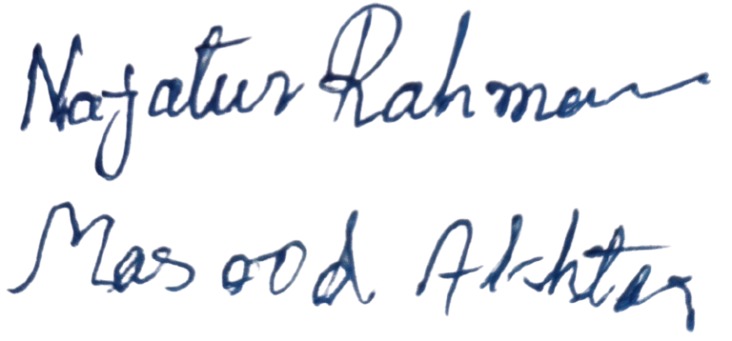 Najatur Rahman
Masood Akhtar